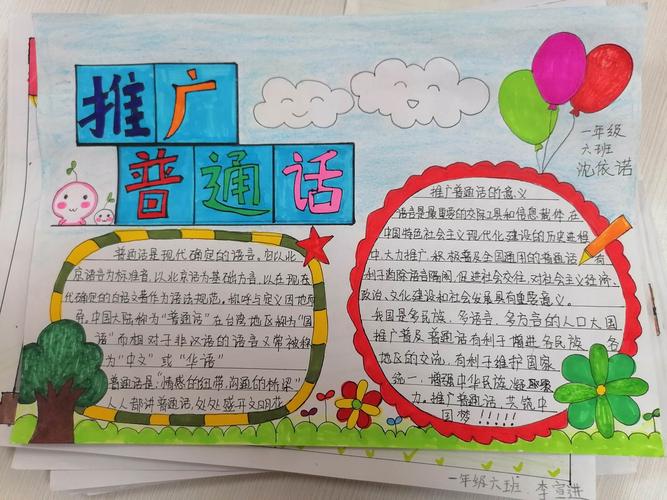 推广
普通话
一年级
六班
沈依诺
普通话是现代确定的语言。它以北
京语音为标准音,以北京话为基础方言,以在现
代确定的白话文著作为语法规范。称呼与定义因地而
异。中国大陆称为“普通话”在台湾地区称为“国
语”而相对于非汉语的语言又常被称
为“中文”或“华语”
普通话是“情感的纽带,沟通的桥梁”
人人都讲普通话,处处盛开文明花
推广普通话的意义
语言是最重要的交际工具和信息载体,在
中国特色社会主义现代化建设的历史进程
中,大力推广、积极普及全国通用的普通话,有
利于消除语言隔阂,促进社会交往,对社会主义经济、
政治、文化建设和社会发展具有重要意义。
我国是多民族、多语言、多方言的人口大国
推广普及普通话有利于增进各民族、各
地区的交流,有利于维护国家
统一,增强中华民族凝聚
力。推广普通话,共筑中
国梦!!!!!
一年级六班 李宣进